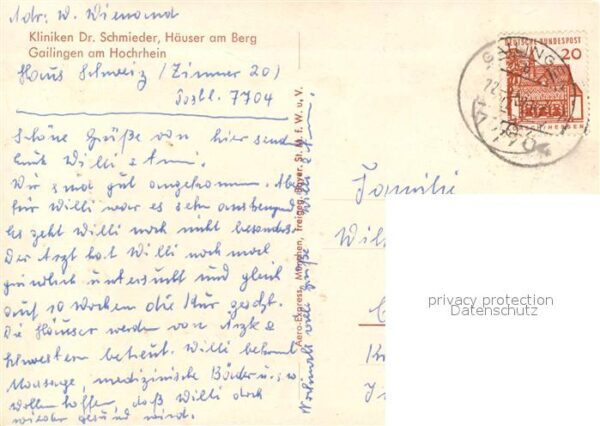 Adr: W. Wienand
Kliniken Dr. Schmieder, Häuser am Berg
Gailingen am Hochrhein
Haus Schweiz (Zimmer 20)
Postl. 7704
Schöne Grüße von hier senden
Willi & Anni.
Wir sind gut angekommen. Aber
für Willi war es sehr anstrengend
Es geht Willi noch nicht besonders.
Der Arzt hat Willi noch mal
gründlich untersucht und gleich
auf 10 Wochen die Kur gesetzt.
Die Häuser werden von Ärzte &
Schwestern betreut. Willi bekommt
Massage, medizinische Bäder u.s.w
Wollen hoffen, daß Willi doch
wieder gesund wird.
Nochmals viele Grüße Willi & Anni
Aero-Express, München, Freigeg. Bayer. St. M. f. W. u. V.
DEUTSCHE BUNDESPOST
20
7704
Familie
privacy protection
Datenschutz